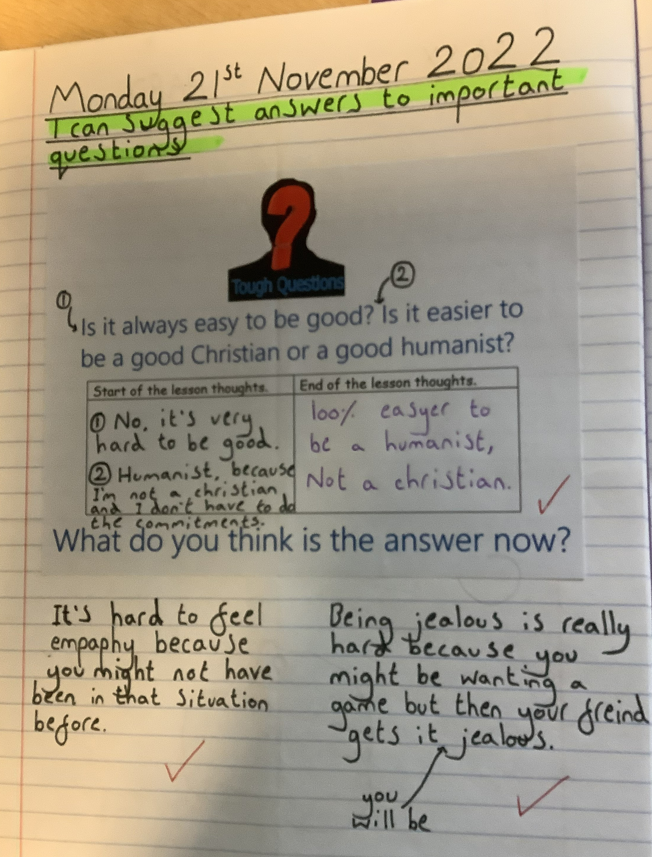 Monday 21st November 2022
I can suggest answers to important
questions
Tough Questions
①
②
Is it always easy to be good? Is it easier to
be a good Christian or a good humanist?
Start of the lesson thoughts.
① No, it's very
hard to be good.
② Humanist, because
I'm not a christian
and I don't have to do
the commitments.
End of the lesson thoughts.
100% easyer to
be a humanist,
Not a christian.
What do you think is the answer now?
It's hard to feel
empaphy because
you might not have
been in that situation
before.
Being jealous is really
hard because you
might be wanting a
game but then your freind
gets it jealous.
you
will be